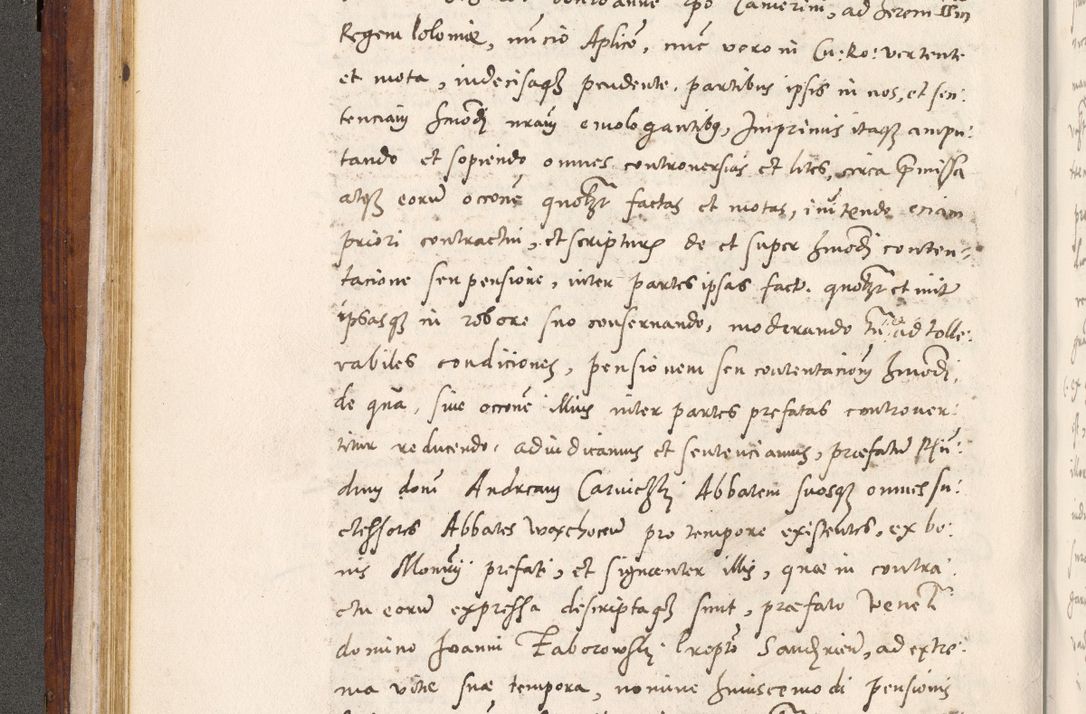 Camerini, ad Serem
Regem Poloniæ, nuncio Aplico, nunc vero in Cu: Ro: vertente
et mota, indecisaqз pendente, partibus ipsis in nos, et sen:
tenciam hmodi nram emologantibq, Imprimis itaqз ampu:
tando et sopiendo omnes controversias et lites, circa pmissa
atqз eorum occone quoblzt factas et motas, innitendo eciam
priori contractui, et scripturæ de et super hmodi conten=
tacione seu pensione, inter partes ipsas fact. quoblzt et init
ipsasqз in robore suo conservando, moderando tn: ad tolle:
rabiles condiciones, pensionem seu contentacionem hmodi,
de qua, sive occone illius inter partes prefatas controver:
titur reducendo, adiudicamus et sentenciamus, præfatum Rn̄:
dum dom Andream Abbatem suosqз omnes su:
ctessores Abbates Wachocen pro tempore existentes, ex bo:
nis Monrij prefati, et signanter illis, quæ in contra
ctu eorum expressa descriptaqз sunt, præfato Venebl
domino Joanni Taborowsky Prepto Sandzrien, ad extre:
ma vitæ suæ tempora, nomine huiuscemodi pensionis